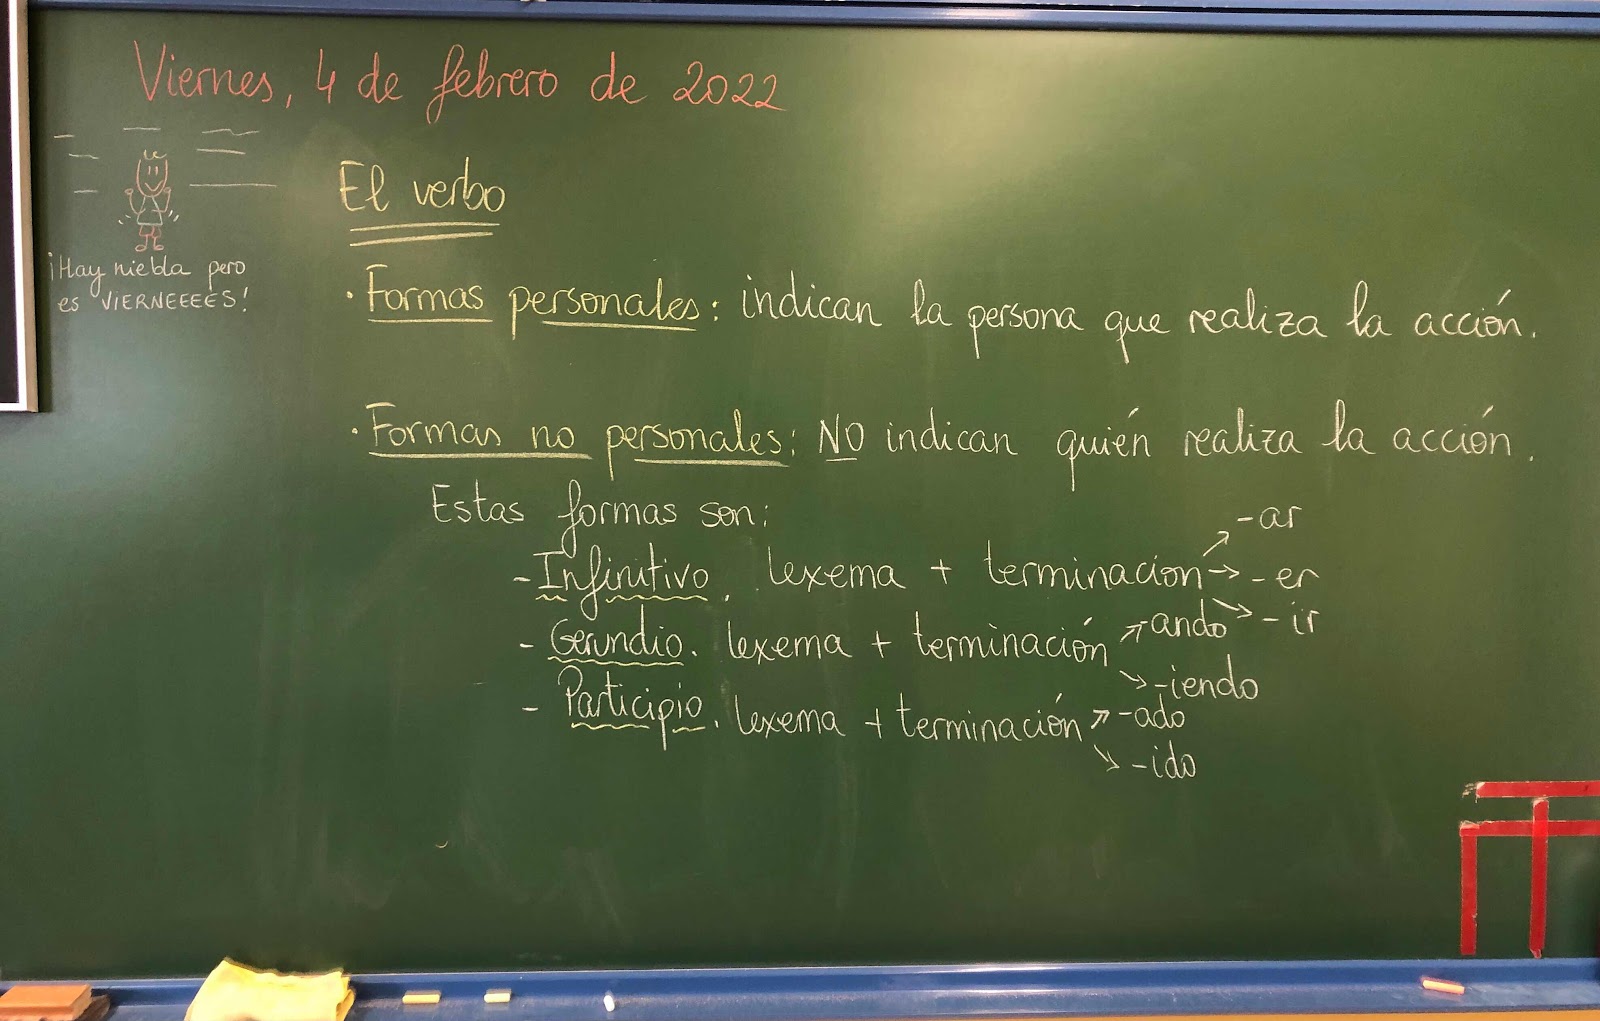 Viernes, 4 de febrero de 2022
¡Hay niebla pero
es VIERNEEEES!
El verbo
· Formas personales: indican la persona que realiza la acción.
· Formas no personales: NO indican quién realiza la acción.
Estas formas son:
- Infinitivo. lexema + terminacion → -ar
→ -er
→ -ir
- Gerundio. lexema + terminación → -ando
→ -iendo
- Participio. lexema + terminación → -ado
→ -ido